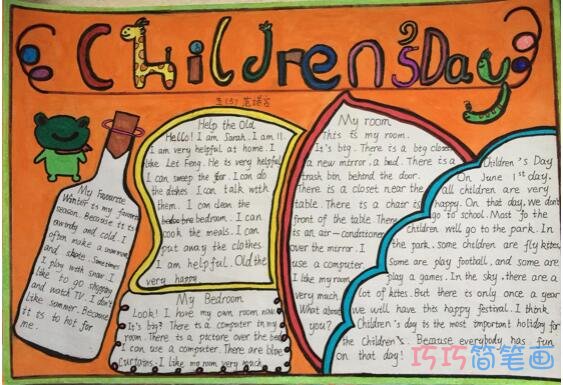 Children's Day
Help the Old
Hello! I am Sarah. I am 11.
I am very helpful at home. I
like Lei Feng. He is very helpful
I can sweep the for. I can do
the dishes. I can talk with
them. I can clean the
bedroom. I can
cook the meals. I can
put away the clothes
I am helpful. Old the
very happy
My room
This is my room.
It's big. There is a big closet
a new mirror, a bed. There is a
trash bin behind the door.
There is a closet near the
table. There is a chair is
front of the table. There
is an air-conditioner
over the mirror. I
use a computer.
I like my room
very much.
What about
you?
My Favourite
Winter is my favorite
season. Because it is
windy and cold. I
often make a snowman
and skate. Sometimes
I play with snow. I
like to go shopping
and watch TV. I don't
like summer. Because
it is to hot for
me.
My Bedroom
Look! I have my own room now
It's big? There is a computer in my
room. There is a picture over the bed
I can use a computer. There are blue
curtains. I like my room very much
Children's Day is
On June 1st day.
all children are very
happy. On that day, We don't
go to school. Most fo the
children will go to the park. In
the park, some children are fly kites,
Some are play football, and some are
play a games. In the sky, there are a
lot of kites. But there is only once a year
we will have this happy festival. I think
Children's day is the most important holiday for
the Children's. Because everybody has fun
on that day!
巧巧简笔画